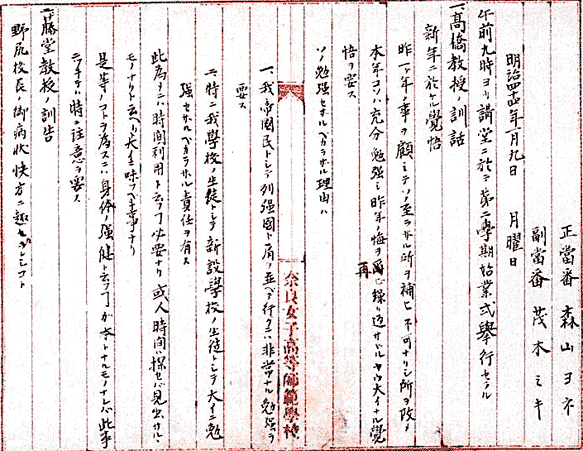 正當番 森山ヨネ
副當番 茂木ミキ
明治四十四年一月九日 月曜日
午前九時ヨリ講堂ニ於テ第二學期始業式舉行セラル
一、髙橋教授ノ訓話
新年ニ於ケル覺悟
昨一ヶ年ノ事ヲ顧ミテソノ至ラザル所ヲ補ヒ不可ナリシ所ヲ改メ
本年コソハ充分勉強シ昨年ノ悔ヲ再ビ繰リ返サザルヤウ大イナル覺
悟ヲ要ス
ソノ勉強セネルベカラザル理由ハ
奈良女子高等師範學校
一、我帝國民トシテ列強國ト肩ヲ並ベテ行クニハ非常ナル勉強ヲ
要ス
二、特ニ我學校ノ生徒トシテ新設學校ノ生徒トシテ大イニ勉
強セネルベカラザル責任ヲ有ス
此為ニハ時間利用ト云フヿ必要ナリ 或人時間ハ探セバ見出サル
モノナリト云ヘリ大イニ味フベキ事ナリ
是等ノコトヲ為スニハ身体ノ強健ト云フヿガ本トナルモノナレバ此事
ニツキテハ特ニ注意ヲ要ス
二、藤堂教授ノ訓告
野尻校長ノ御病状快方ニ趣セラレシコト